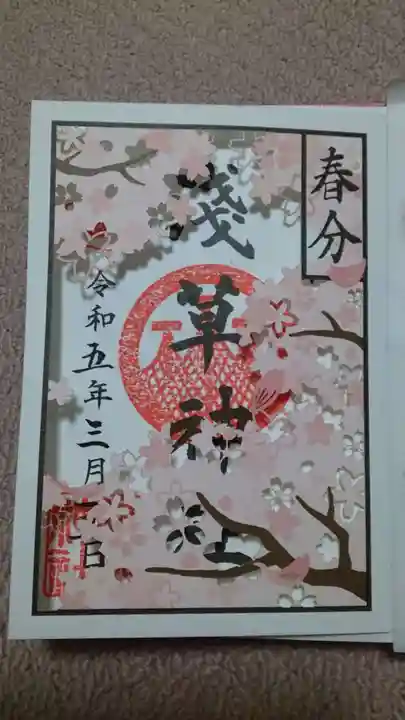 春分
淺草神社
令和五年三月 日